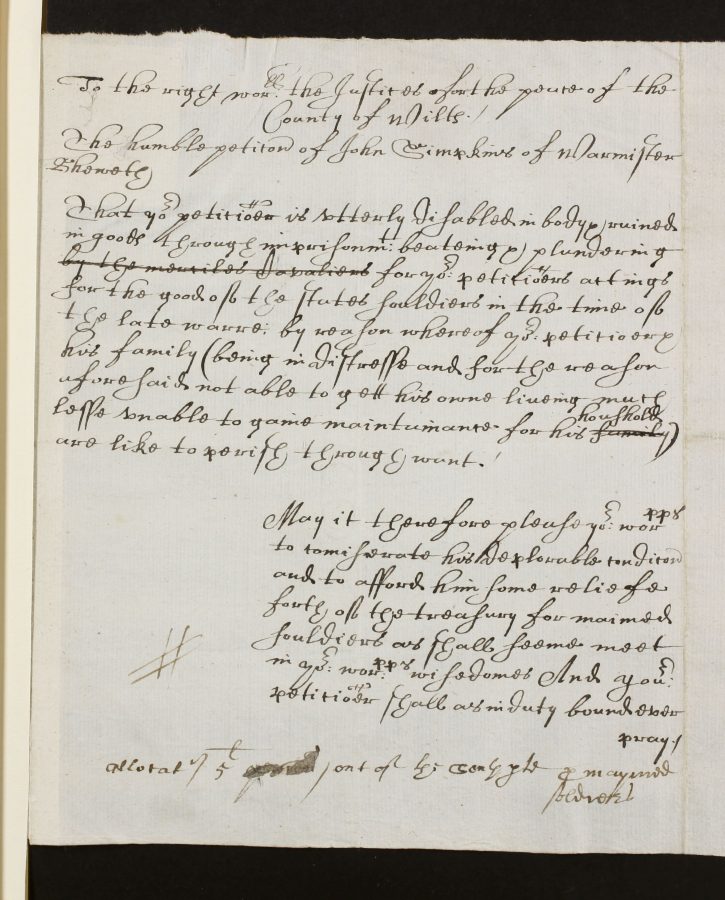 To the right worll: the Justices for the peace of the
County of Wilts./
The humble peticon of John Simpkins of Warmister
Sheweth
That yor: peticioner is vtterly disabled in body & ruined
in goods through imprisonmt: beateing & plundering
by the merciles Cavaliers for yor: peticioners actings
for the good off the states souldiers in the time off
the late warre: by reason whereof yor: peticioner &
his family (being in distresse and for the reason
aforesaid not able to gett his owne liveing much
lesse vnable to gaine maintainance for his family houshold)
are like to perish through want./
May it therefore please yor: worpps
to comiserate his deplorable condicon
and to afford him some reliefe
forth off the treasury for maimed
souldiers as shall seeme meet
in yor: worpps: wisedomes And your:
peticioner shall as in duty bound ever
pray./
allocat 5l out of maymed
soldiers